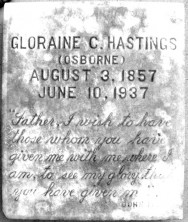 GLORAINE C. HASTINGS
(OSBORNE)
AUGUST 3, 1857
JUNE 10, 1937
"Father, I wish to have
those whom you have
given me with me where I
am, to see my glory that
you have given me"